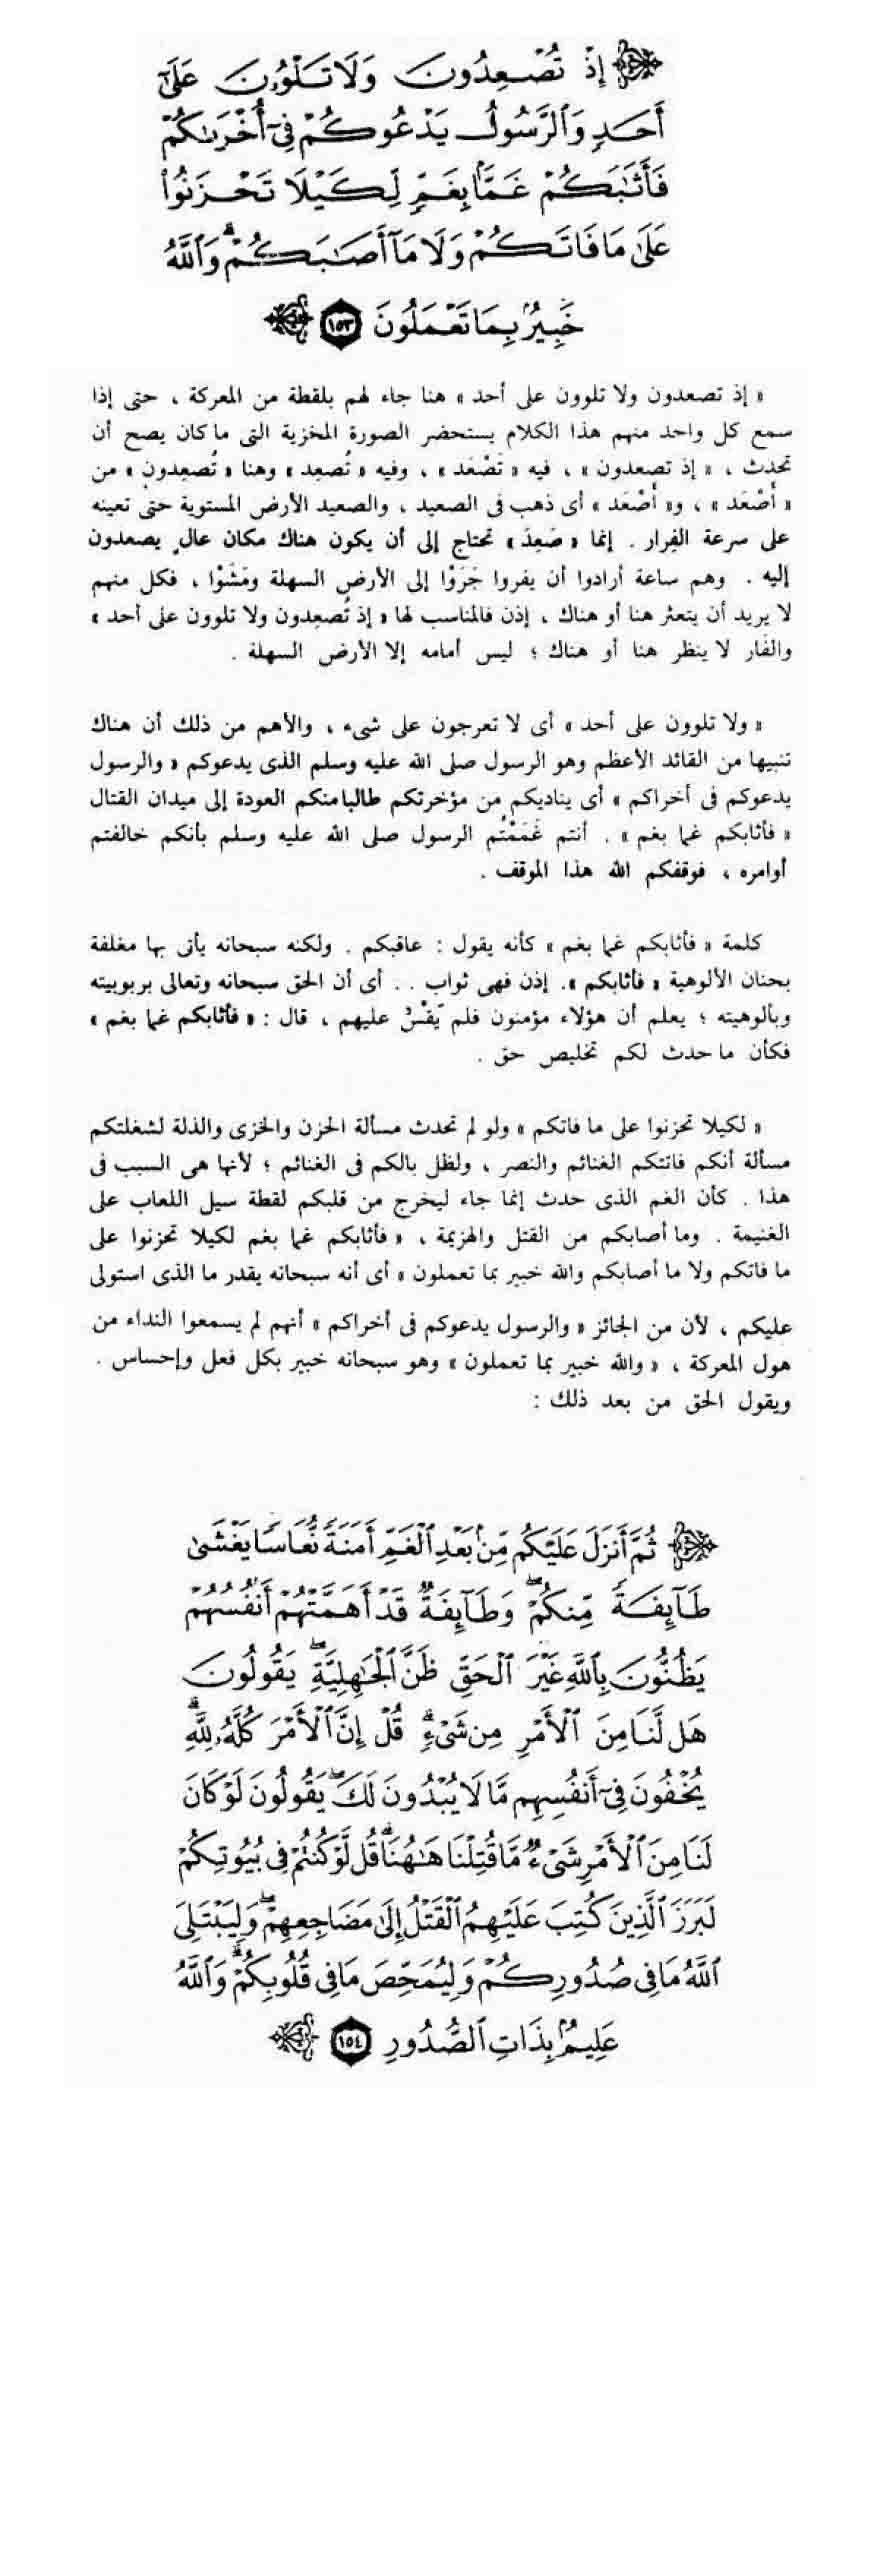 إِذْ تُصْعِدُونَ وَلَا تَلْوُۥنَ عَلَىٰٓ
أَحَدٍ وَٱلرَّسُولُ يَدْعُوكُمْ فِىٓ أُخْرَىٰكُمْ
فَأَثَٰبَكُمْ غَمًّۢا بِغَمٍّ لِّكَيْلَا تَحْزَنُوا۟
عَلَىٰ مَا فَاتَكُمْ وَلَا مَآ أَصَٰبَكُمْ ۗ وَٱللَّهُ
خَبِيرٌۢ بِمَا تَعْمَلُونَ ١٥٣
« إذ تصعدون ولا تلوون على أحد » هنا جاء لهم بلقطة من المعركة ، حتى إذا
سمع كل واحد منهم هذا الكلام يستحضر الصورة المخزية التى ما كان يصح أن
تحدث ، « إذ تصعدون » ، فيه « تَصْعَد » ، وفيه « تُصعِد » وهنا « تُصعِدون » من
« أَصْعَد » ، و« أَصْعَد » أى ذهب فى الصعيد ، والصعيد الأرض المستوية حتى تعينه
على سرعة الفِرار . إنما « صَعِدَ » تحتاج إلى أن يكون هناك مكان عالٍ يصعدون
إليه . وهم ساعة أرادوا أن يفروا جَرَوْا إلى الأرض السهلة ومَشَوْا ، فكل منهم
لا يريد أن يتعثر هنا أو هناك ، إذن فالمناسب لها « إذ تُصعِدون ولا تلوون على أحد »
والفَار لا ينظر هنا أو هناك ؛ ليس أمامه إلا الأرض السهلة .
« ولا تلوون على أحد » أى لا تعرجون على شىء ، والأهم من ذلك أن هناك
تنبيها من القائد الأعظم وهو الرسول صلى الله عليه وسلم الذى يدعوكم « والرسول
يدعوكم فى أخراكم » أى يناديكم من مؤخرتكم طالبا منكم العودة إلى ميدان القتال
« فأثابكم غما بغم » . أنتم غَمَمْتُم الرسول صلى الله عليه وسلم بأنكم خالفتم
أوامره ، فوقفكم الله هذا الموقف .
كلمة « فأثابكم غما بغم » كأنه يقول : عاقبكم . ولكنه سبحانه يأتى بها مغلفة
بحنان الألوهية « فأثابكم ». إذن فهى ثواب . . أى أن الحق سبحانه وتعالى بربوبيته
وبألوهيته ؛ يعلم أن هؤلاء مؤمنون فلم يَقْسُ عليهم ، قال : « فأثابكم غما بغم »
فكأن ما حدث لكم تخليص حق .
« لكيلا تحزنوا على ما فاتكم » ولو لم تحدث مسألة الحزن والخزى والذلة لشغلتكم
مسألة أنكم فاتتكم الغنائم والنصر ، ولظل بالكم فى الغنائم ؛ لأنها هى السبب فى
هذا . كأن الغم الذى حدث إنما جاء ليخرج من قلبكم لقطة سيل اللعاب على
الغنيمة . وما أصابكم من القتل والهزيمة ، « فأثابكم غما بغم لكيلا تحزنوا على
ما فاتكم ولا ما أصابكم والله خبير بما تعملون » أى أنه سبحانه يقدر ما الذى استولى
عليكم ، لأن من الجائز « والرسول يدعوكم فى أخراكم » أنهم لم يسمعوا النداء من
هول المعركة ، « والله خبير بما تعملون » وهو سبحانه خبير بكل فعل وإحساس .
ويقول الحق من بعد ذلك :
ثُمَّ أَنزَلَ عَلَيْكُم مِّنۢ بَعْدِ ٱلْغَمِّ أَمَنَةً نُّعَاسًا يَغْشَىٰ
طَآئِفَةً مِّنكُمْ ۖ وَطَآئِفَةٌ قَدْ أَهَمَّتْهُمْ أَنفُسُهُمْ
يَظُنُّونَ بِٱللَّهِ غَيْرَ ٱلْحَقِّ ظَنَّ ٱلْجَٰهِلِيَّةِ ۖ يَقُولُونَ
هَل لَّنَا مِنَ ٱلْأَمْرِ مِن شَىْءٍ ۗ قُلْ إِنَّ ٱلْأَمْرَ كُلَّهُۥ لِلَّهِ ۗ
يُخْفُونَ فِىٓ أَنفُسِهِم مَّا لَا يُبْدُونَ لَكَ ۖ يَقُولُونَ لَوْ كَانَ
لَنَا مِنَ ٱلْأَمْرِ شَىْءٌ مَّا قُتِلْنَا هَٰهُنَا ۗ قُل لَّوْ كُنتُمْ فِى بُيُوتِكُمْ
لَبَرَزَ ٱلَّذِينَ كُتِبَ عَلَيْهِمُ ٱلْقَتْلُ إِلَىٰ مَضَاجِعِهِمْ ۖ وَلِيَبْتَلِىَ
ٱللَّهُ مَا فِى صُدُورِكُمْ وَلِيُمَحِّصَ مَا فِى قُلُوبِكُمْ ۗ وَٱللَّهُ
عَلِيمٌۢ بِذَاتِ ٱلصُّدُورِ ١٥٤